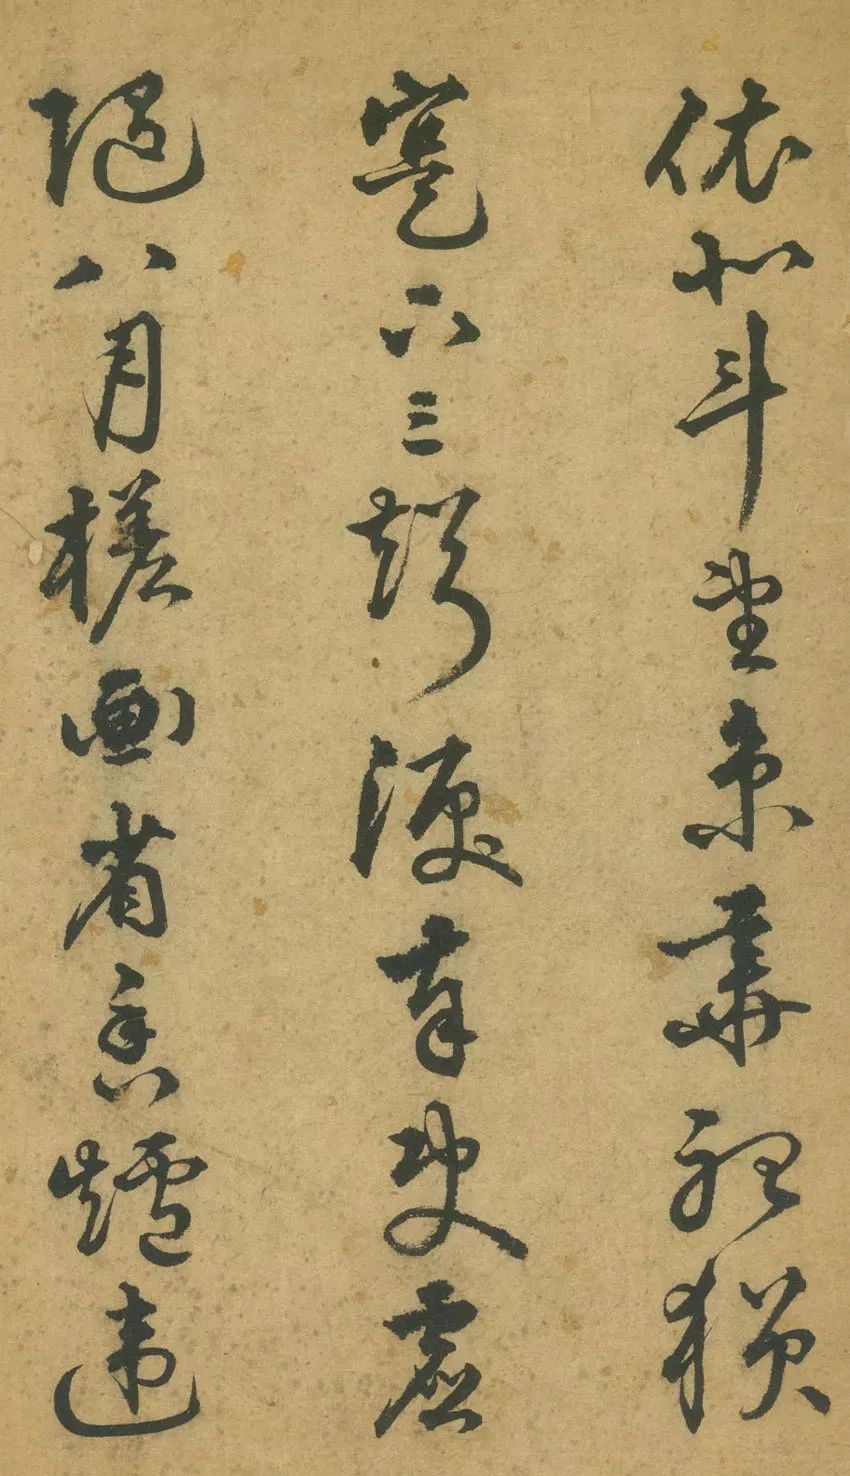 依北斗望京華聽猿
寔下三聲淚奉使虛
隨八月槎畫省香爐違